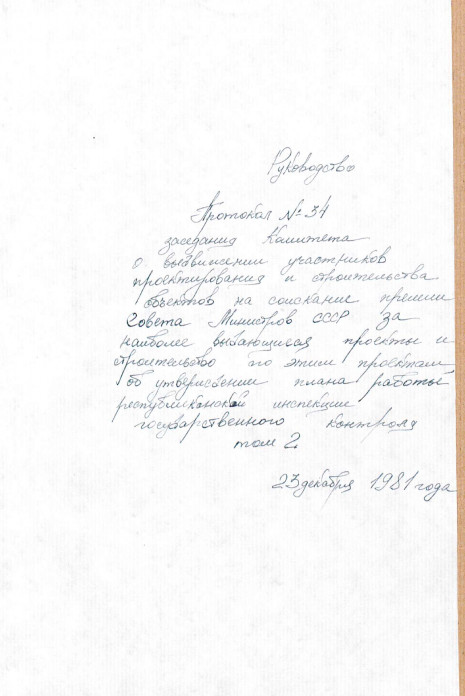 Руководство
Протокол № 34
заседания Комитета
о выдвижении участников
проектирования и строительства
объектов на соискание премии
Совета Министров СССР за
наиболее выдающиеся проекты и
строительство по этим проектам
об утверждении плана работы
республиканской инспекции
государственного контроля
том 2
23 декабря 1981 года